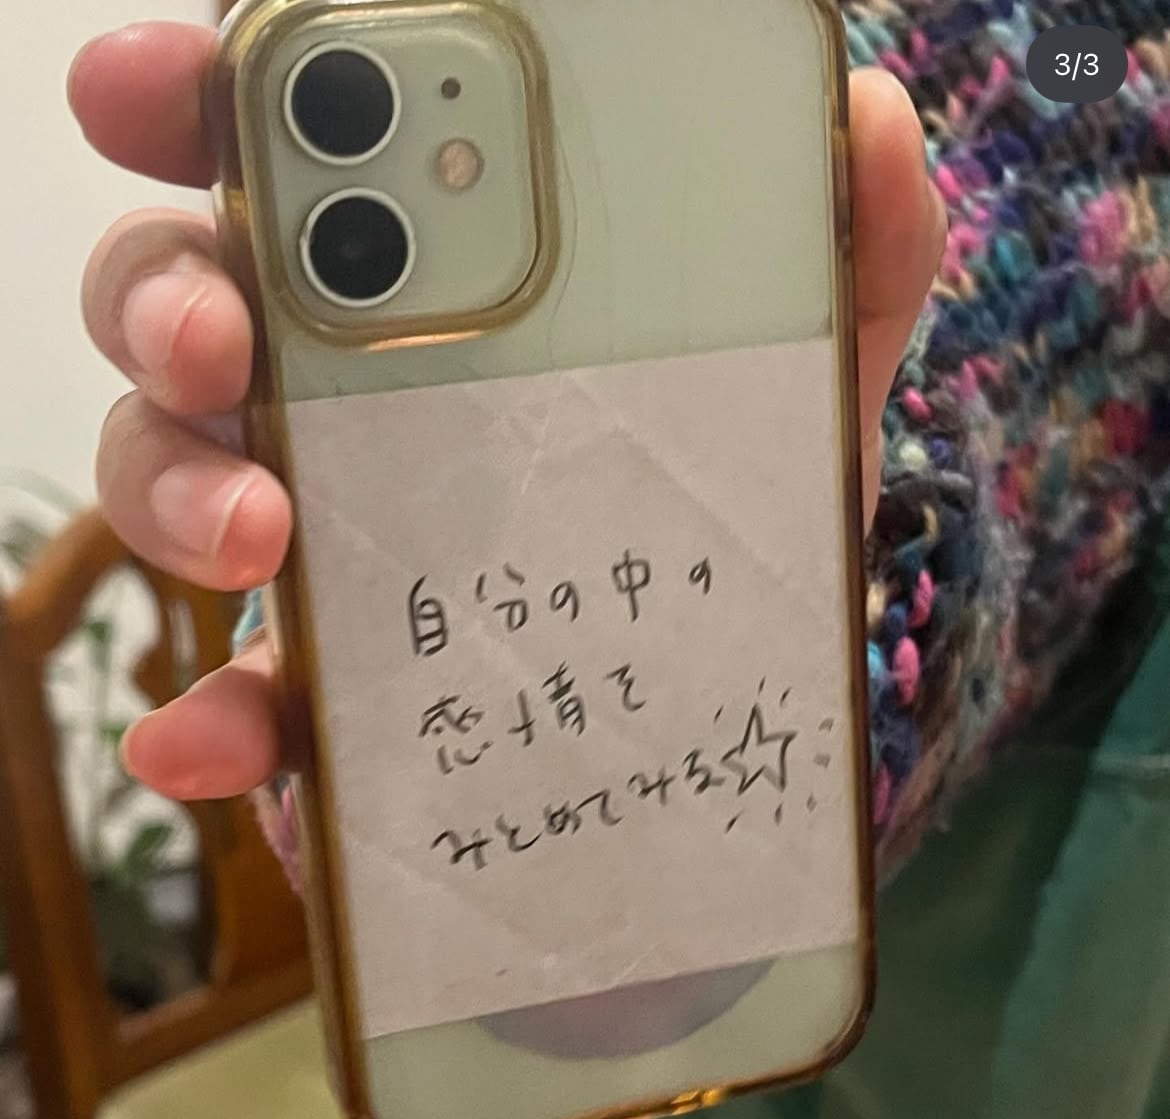 3/3
自分の中の
感情を
みとめてみる☆